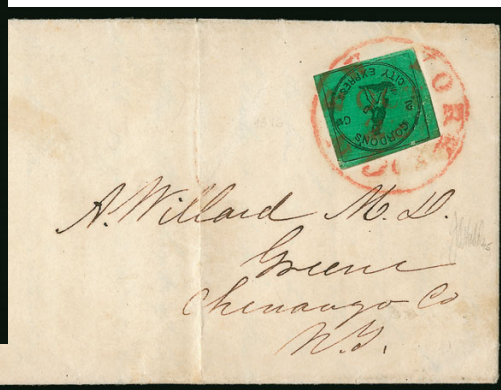 YORK
GORDON'S
CITY EXPRESS
2 Cts
A. Willard M.D.
Greene
Chenango Co
N.Y.